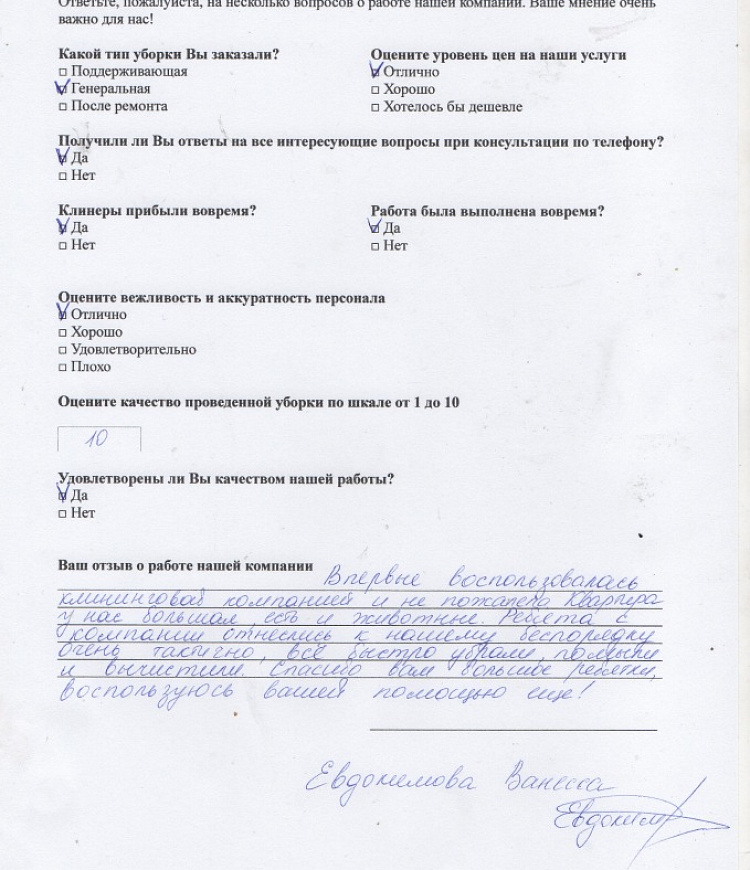 Ответьте, пожалуйста, на несколько вопросов о работе нашей компании. Ваше мнение очень
важно для нас!
Какой тип уборки Вы заказали?
Поддерживающая
Генеральная
После ремонта
Оцените уровень цен на наши услуги
Отлично
Хорошо
Хотелось бы дешевле
Получили ли Вы ответы на все интересующие вопросы при консультации по телефону?
Да
Нет
Клинеры прибыли вовремя?
Да
Нет
Работа была выполнена вовремя?
Да
Нет
Оцените вежливость и аккуратность персонала
Отлично
Хорошо
Удовлетворительно
Плохо
Оцените качество проведенной уборки по шкале от 1 до 10
10
Удовлетворены ли Вы качеством нашей работы?
Да
Нет
Ваш отзыв о работе нашей компании Впервые воспользовалась
клининговой компанией и не пожалела Квартира
у нас большая, есть и животные. Ребята с
компании отнеслись к нашему беспорядку
очень тактично, всё быстро убрали, помыли
и вычистили. Спасибо вам большое ребятки,
воспользуюсь вашей помощью еще!
Евдокимова Ванесса
Евдоким